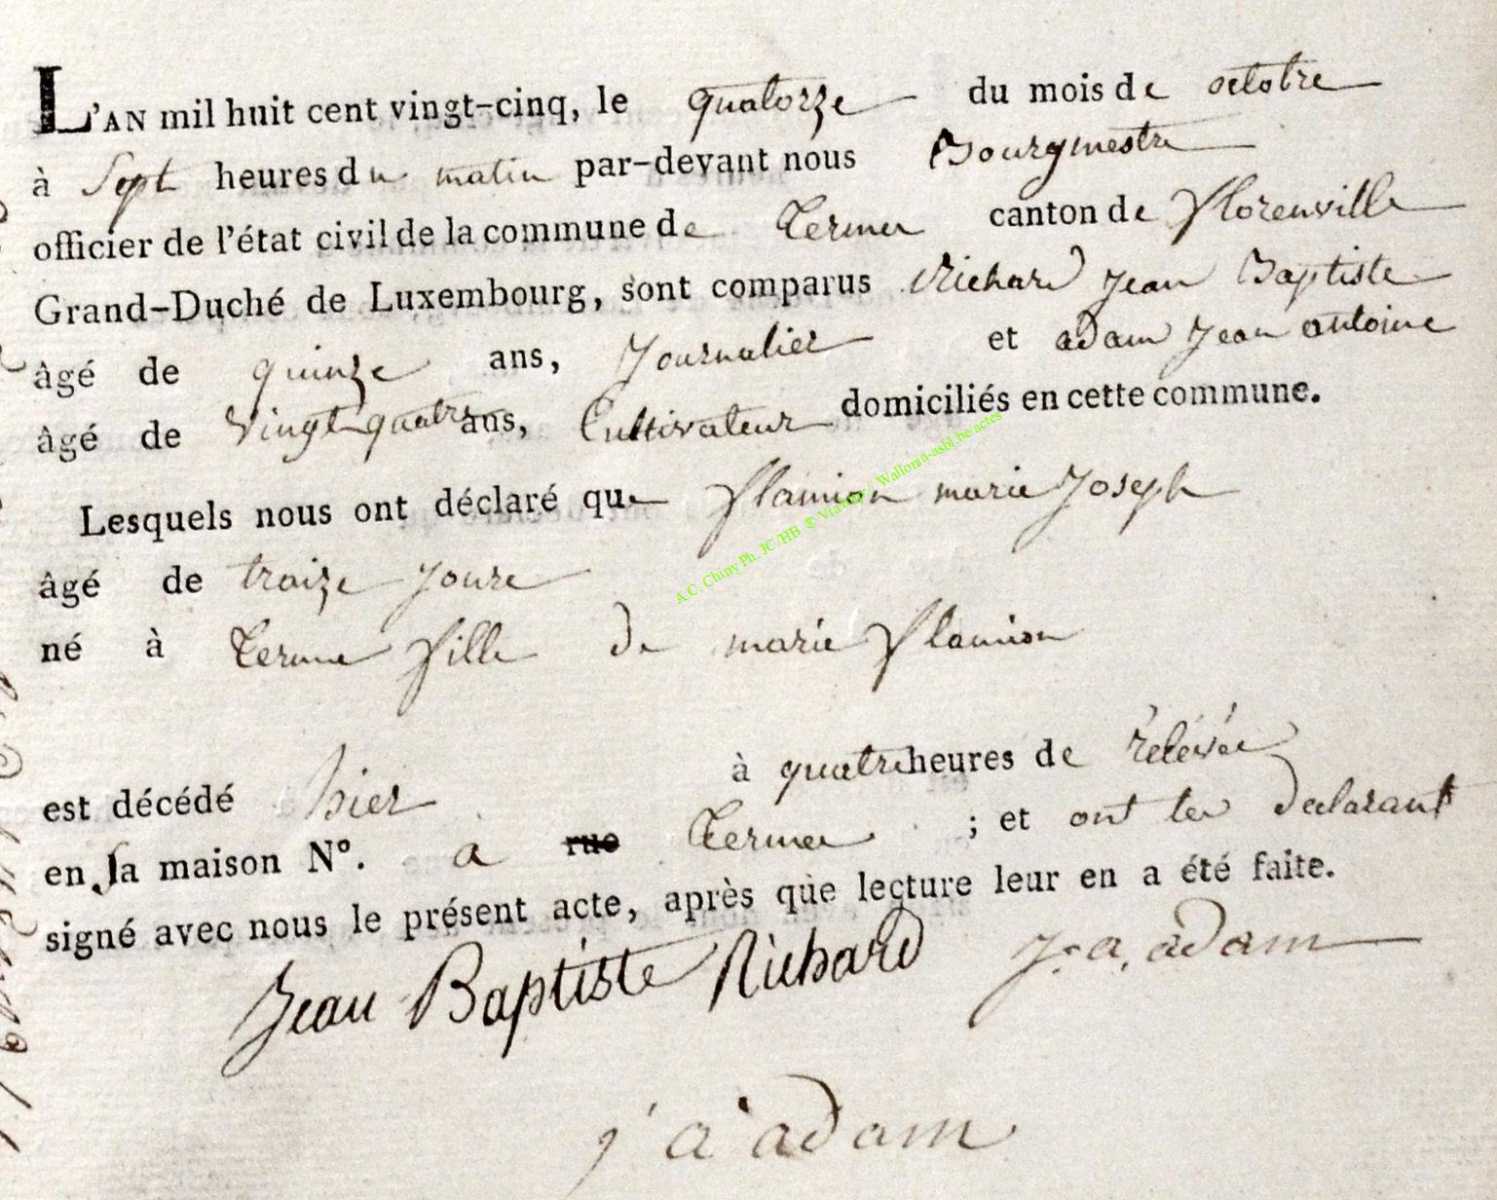 L'AN mil huit cent vingt-cinq, le quatorze du mois de octobre
à Sept heures du matin par-devant nous Bourgmestre
officier de l'état civil de la commune de Termes canton de florenville
Grand-Duché de Luxembourg, sont comparus Richard Jean Baptiste
âgé de quinze ans, Journalier et adam Jean antoine
âgé de vingt quatre ans, Cultivateur domiciliés en cette commune.
Lesquels nous ont déclaré que flamion marie Joseph
âgé de traize Jours
né à Terme fille de marie flamion
est décédé hier à quatre heures de rélévée
en sa maison N°. a rue Termes ; et ont les declarant
signé avec nous le présent acte, après que lecture leur en a été faite.
Jean Baptiste Richard J. a. adam
j a adam
A.C. Chiny Ph. JC/HB © Wallonia-asbl.be-actes